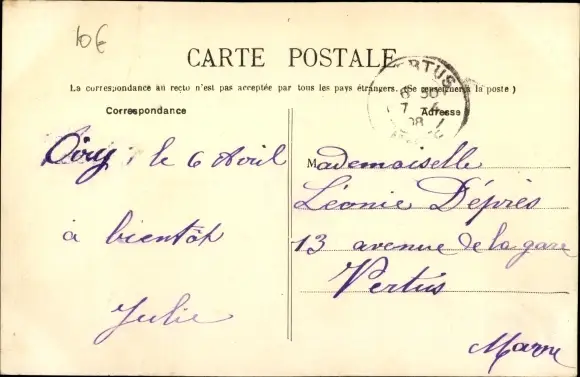 10€
CARTE POSTALE
La correspondance au recto n'est pas acceptée par tous les pays étrangers. (Se renseigner à la poste)
Correspondance
Adresse
VERTUS
6 30
7 4
08
Oiry, le 6 Avril
à bientôt
Julie
Mademoiselle
Léonie Déprès
13 avenue de la gare
Vertus
Marne